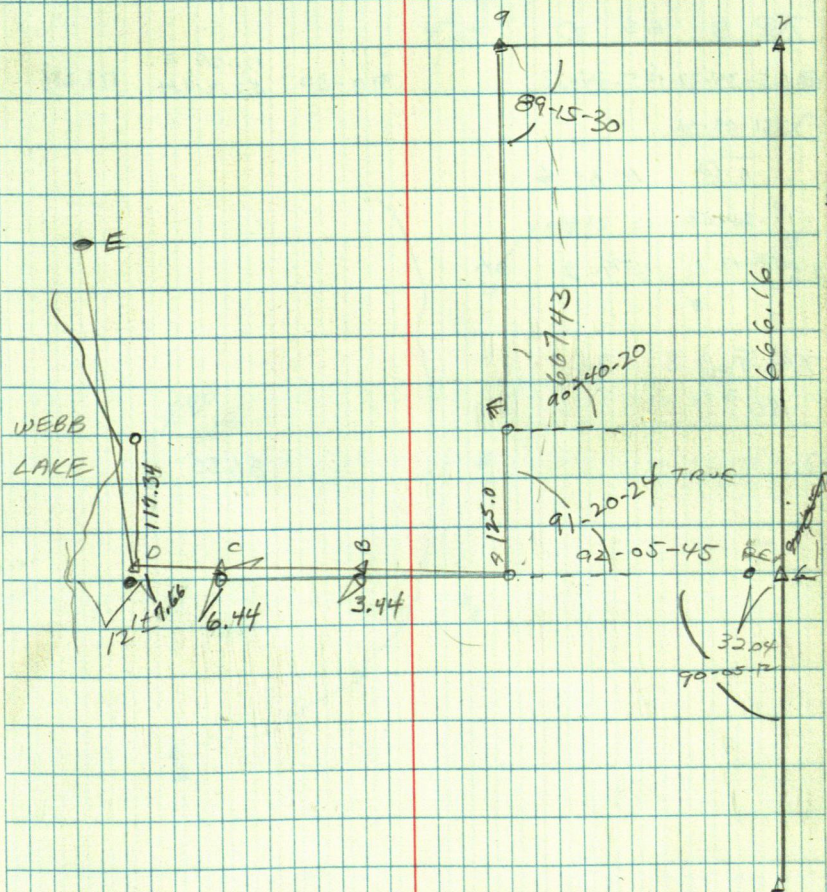 9
89-15-30
E
667.43
666.16
90-40-20
WEBB
LAKE
117.34
125.0
91-20-24 TRUE
92-05-45
D
C
B
12'±
7.66
6.44
3.44
32.04
90-05-12